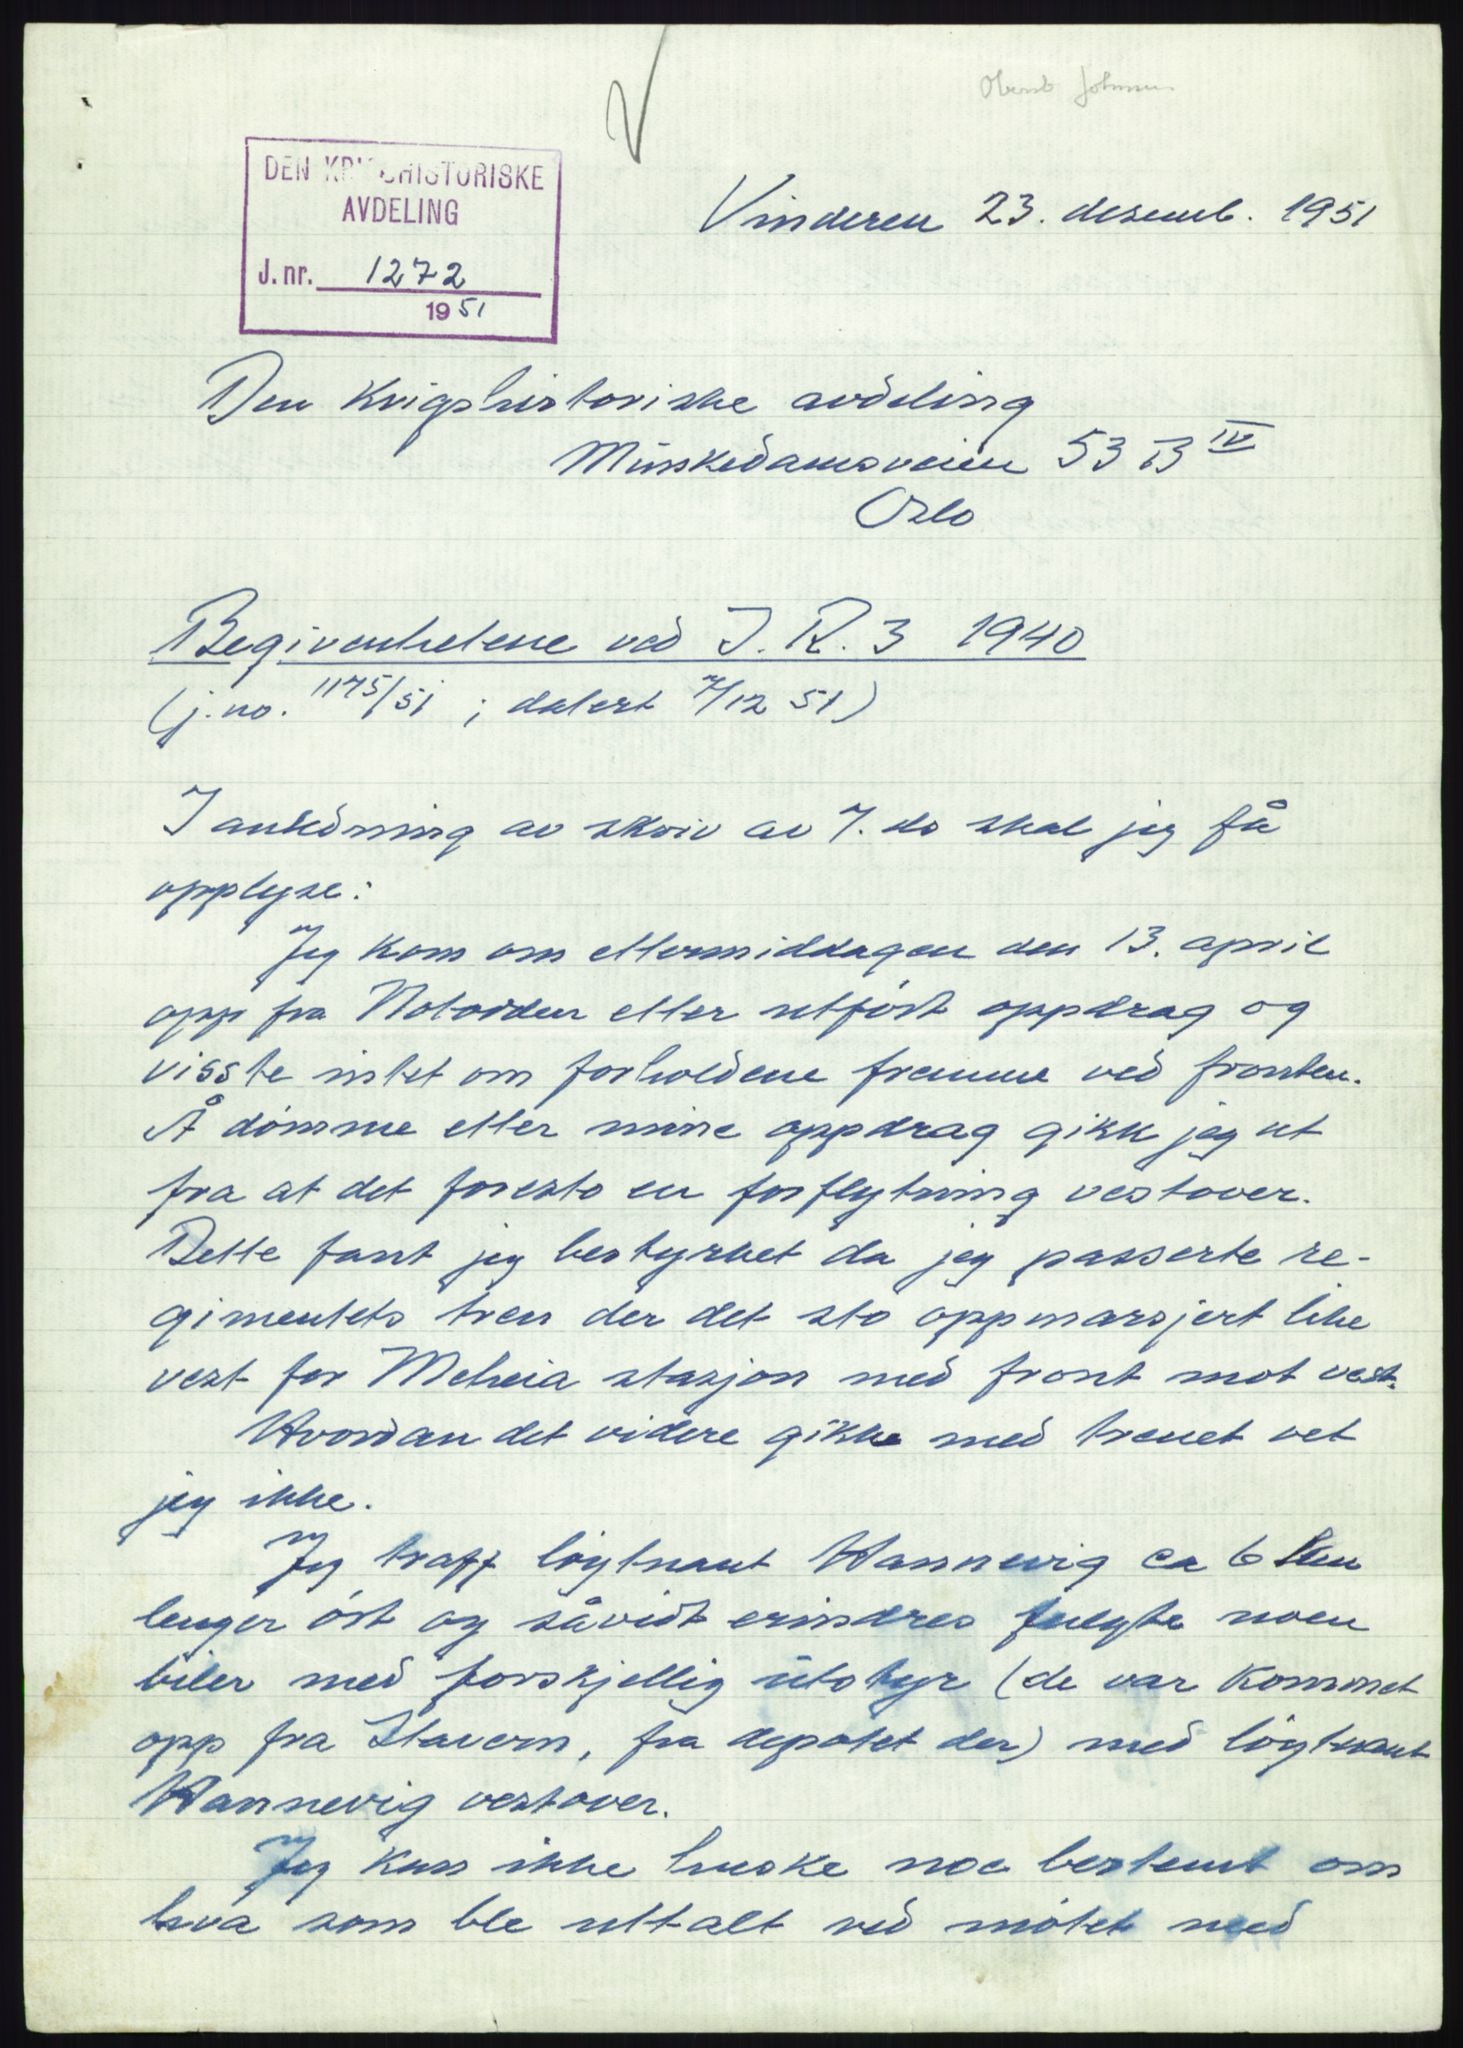 Oberst Johnsen
DEN KRIGSHISTORISKE
AVDELING
J. nr. 1272
1951
Vinderen 23. desemb. 1951
Den Krigshistoriske avdeling
Munkedamsveien 53 B IV
Oslo
Begivenhetene ved I.R. 3 1940
(j.no. 1175/51 ; datert 7/12 51)
I anledning av skriv av 7. ds skal jeg få
opplyse:
Jeg kom om ettermiddagen den 13. april
opp fra Notodden etter utført oppdrag og
visste intet om forholdene fremme ved fronten.
Å dømme etter mine oppdrag gikk jeg ut
fra at det foresto en forflytning vestover.
Dette fant jeg bestyrket da jeg passerte re-
gimentets tren der det sto oppmarsjert like
vest for Meheia stasjon med front mot vest.
Hvordan det videre gikk med trenet vet
jeg ikke.
Jeg traff løytnant Hannevig ca 6 km
lenger øst og såvidt erindres fulgte noen
biler med forskjellig utstyr (de var kommet
opp fra Stavern, fra depotet der) med løytnant
Hannevig vestover.
Jeg kan ikke huske noe bestemt om
hva som ble uttalt ved møtet med